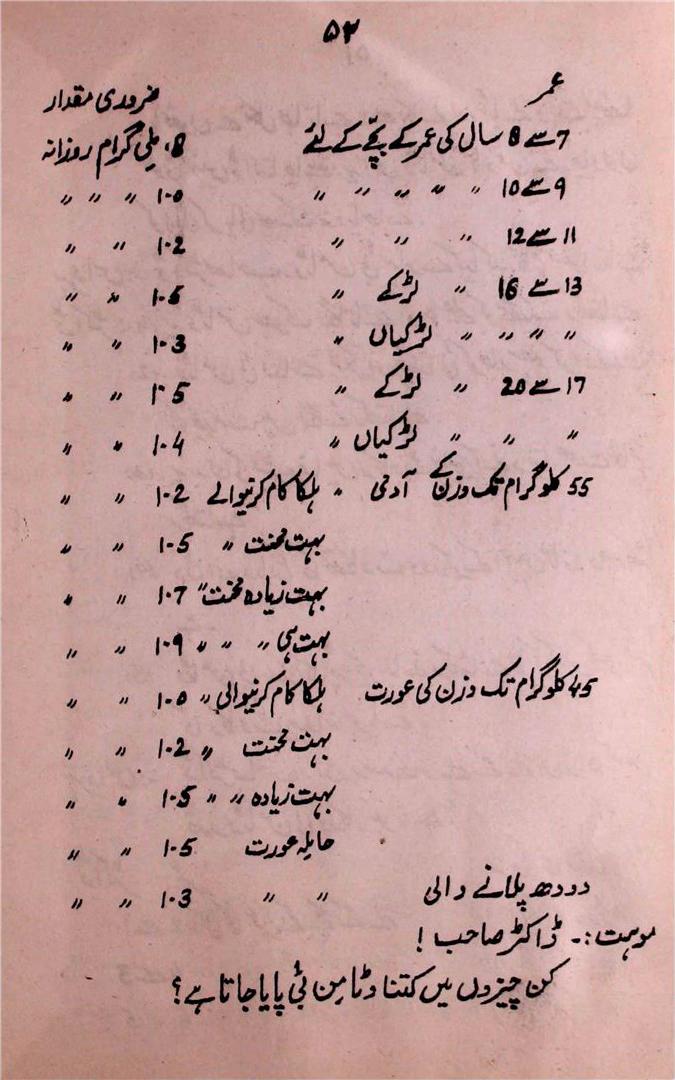 ۵۳
عمر ضروری مقدار
7 سے 8 سال کی عمر کے بچّے کے لئے 8. ملی گرام روزانہ
9 سے 10 〃 〃 〃 〃 〃 1.0 〃 〃 〃
11 سے 12 〃 〃 〃 1.2 〃 〃
13 سے 16 〃 لڑکے 〃 1.5 〃 〃
〃 〃 〃 〃 〃 لڑکیاں 〃 1.3 〃 〃
17 سے 20 〃 لڑکے 〃 1.5 〃 〃
〃 〃 〃 لڑکیاں 〃 1.4 〃 〃
55 کلوگرام تک وزن کے آدمی 〃 ہلکا کام کرنیوالے 1.2 〃 〃
بہت محنت 〃 1.5 〃 〃
بہت زیادہ محنت 〃 1.7 〃 〃
بہت ہی 〃 〃 〃 1.9 〃 〃
45 کلوگرام تک وزن کی عورت ہلکا کام کرنیوالی 〃 1.0 〃 〃
بہت محنت 〃 1.2 〃 〃
بہت زیادہ 〃 〃 1.5 〃 〃
حاملہ عورت 1.5 〃 〃
دودھ پلانے والی 〃 〃 1.3 〃 〃
موہت:۔ ڈاکٹر صاحب!
کن چیزوں میں کتنا وٹامن بی پایا جاتا ہے؟